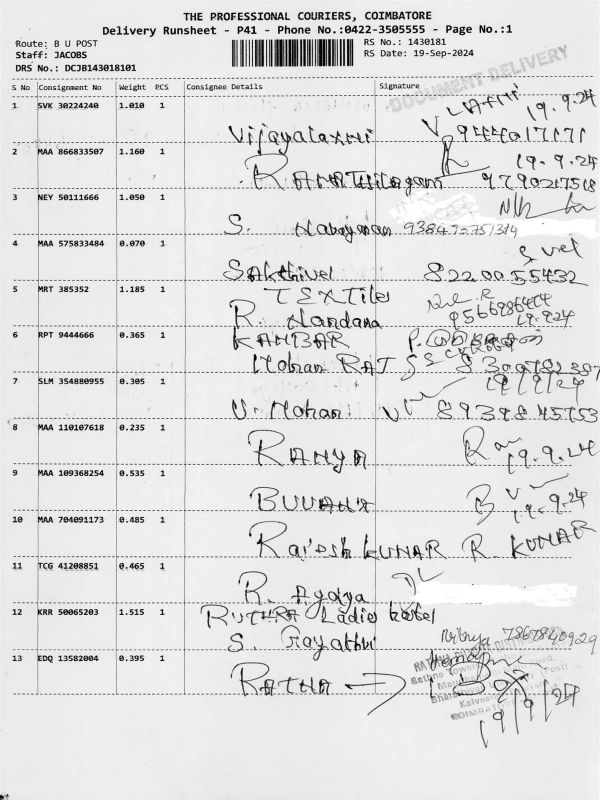 THE PROFESSIONAL COURIERS, COIMBATORE
Delivery Runsheet - P41 - Phone No.:0422-3505555 - Page No.:1
Route: B U POST
RS No.: 1430181
Staff: JACOBS
RS Date: 19-Sep-2024
DRS No.: DCJB143018101
DOCUMENT DELIVERY
S No Consignment No Weight PCS Consignee Details Signature
1 SVK 30224240 1.010 1
19.9.24
Vijayalaxmi 9444017171
2 MAA 866833507 1.160 1
19.9.24
RAMAThilagam 9790217518
3 NEY 50111666 1.050 1
S. Narayanan
4 MAA 575833484 0.070 1
S vel
SAKthivel 8220055432
5 MRT 385352 1.185 1 TEXTiles
R. Nandana 19.9.24
6 RPT 9444666 0.365 1 KAMBAR
Mohan RAJ
7 SLM 354880955 0.305 1 19/9/24
V. Mohan
8 MAA 110107618 0.235 1
RAMYA 19.9.24
9 MAA 109368254 0.535 1
BUVANA 19.9.24
10 MAA 704091173 0.485 1
Rajesh KUMAR R. KUMAR
11 TCG 41208851 0.465 1
R.
12 KRR 50065203 1.515 1 RUTHRA Ladies hotel
S. Gayathri Nithya 7867840929
13 EDQ 13582004 0.395 1
RATHA → 19/9/24
COIMBATORE